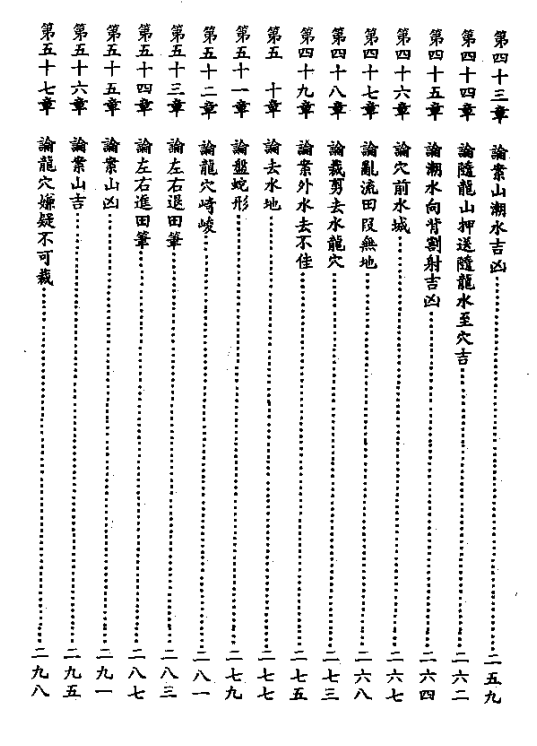 第四十三章 論案山潮水吉凶……二五九
第四十四章 論隨龍山押送隨龍水至穴吉……二六二
第四十五章 論潮水向背割射吉凶……二六四
第四十六章 論穴前水城……二六七
第四十七章 論亂流田段無地……二六八
第四十八章 論裁剪去水龍穴……二七三
第四十九章 論案外水去不佳……二七五
第五十章 論去水地……二七七
第五十一章 論盤蛇形……二七九
第五十二章 論龍穴崎峻……二八一
第五十三章 論左右退田筆……二八三
第五十四章 論左右進田筆……二八七
第五十五章 論案山凶……二九一
第五十六章 論案山吉……二九五
第五十七章 論龍穴嫌疑不可裁……二九八